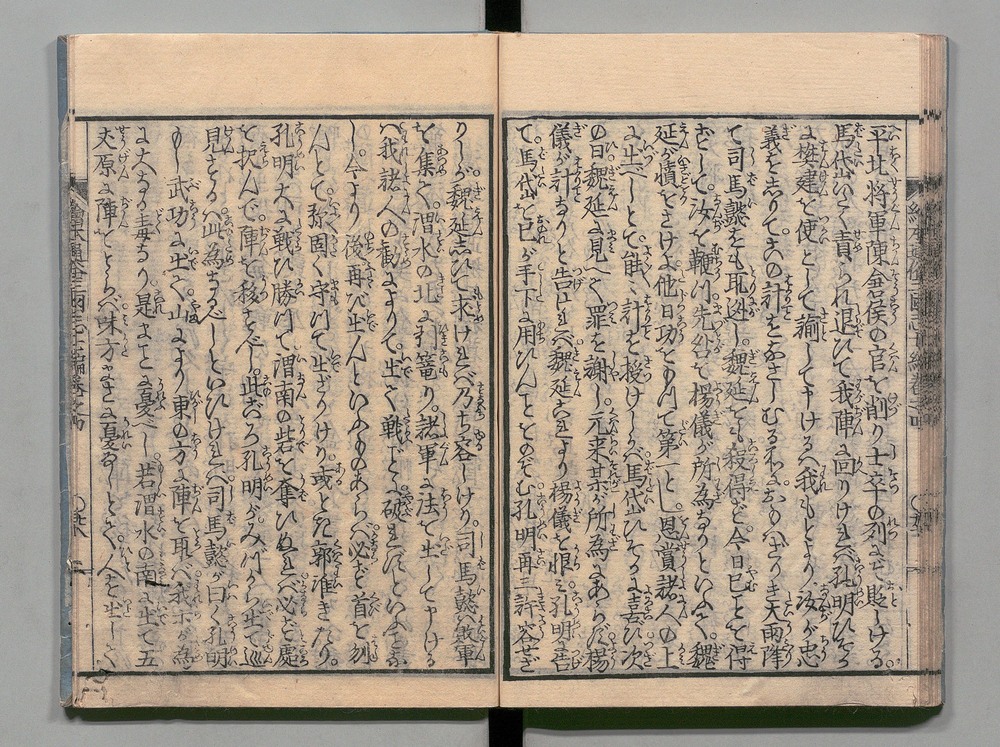 平北将軍陳倉侯の官を削り士卒の列にぞ貶しける。
馬岱ひどく責られ退ひて我陣に回りければ孔明ひそか
に樊建を使として諭して申けるは我もとより汝が忠
義をしりてこの計をなさしむる
大雨降
て司馬懿をも取逃し魏延をも殺得ず今日已ことを得
ずして汝を鞭つ先紿て楊儀が所為なりといふて魏
延が憤をさけよ他日功をもつて第一とし恩賞諸人の上
に出べしとて能々計を授けしかば馬岱ひそかに喜び次
の日魏延に見へて罪を謝し元来某が所為にあらず楊
儀が計なりと告ければ魏延これより楊儀を恨み孔明に告
て馬岱を己が手下に用ひんことをのぞむ孔明再三許容せざ
りしが魏延しひて求ければ乃ち容しけり。司馬懿は敗軍
を集て渭水の北に引篭り。諸軍に法を出して申ける
は我諸人の勧によりて出て戦ことに破れたり
し。今より後再び出んといふものあらば必ず首を刎
んとて。弥固く守つて出ざりけり。或とき郭淮きたり。
孔明大に戦ひ勝つて渭南の砦を奪ひぬれば必ず處
を択んで陣を移すべし。此ごろ孔明がみづから出て巡
見するは此為なるべしといひければ司馬懿が曰く孔明
もし武功に出て。山により東の方に陣を取ば我等が為
に大なる毒なり。是まことに憂べし。若渭水の南に出て五
丈原に陣をとらば味方 憂なしとて。人を出して